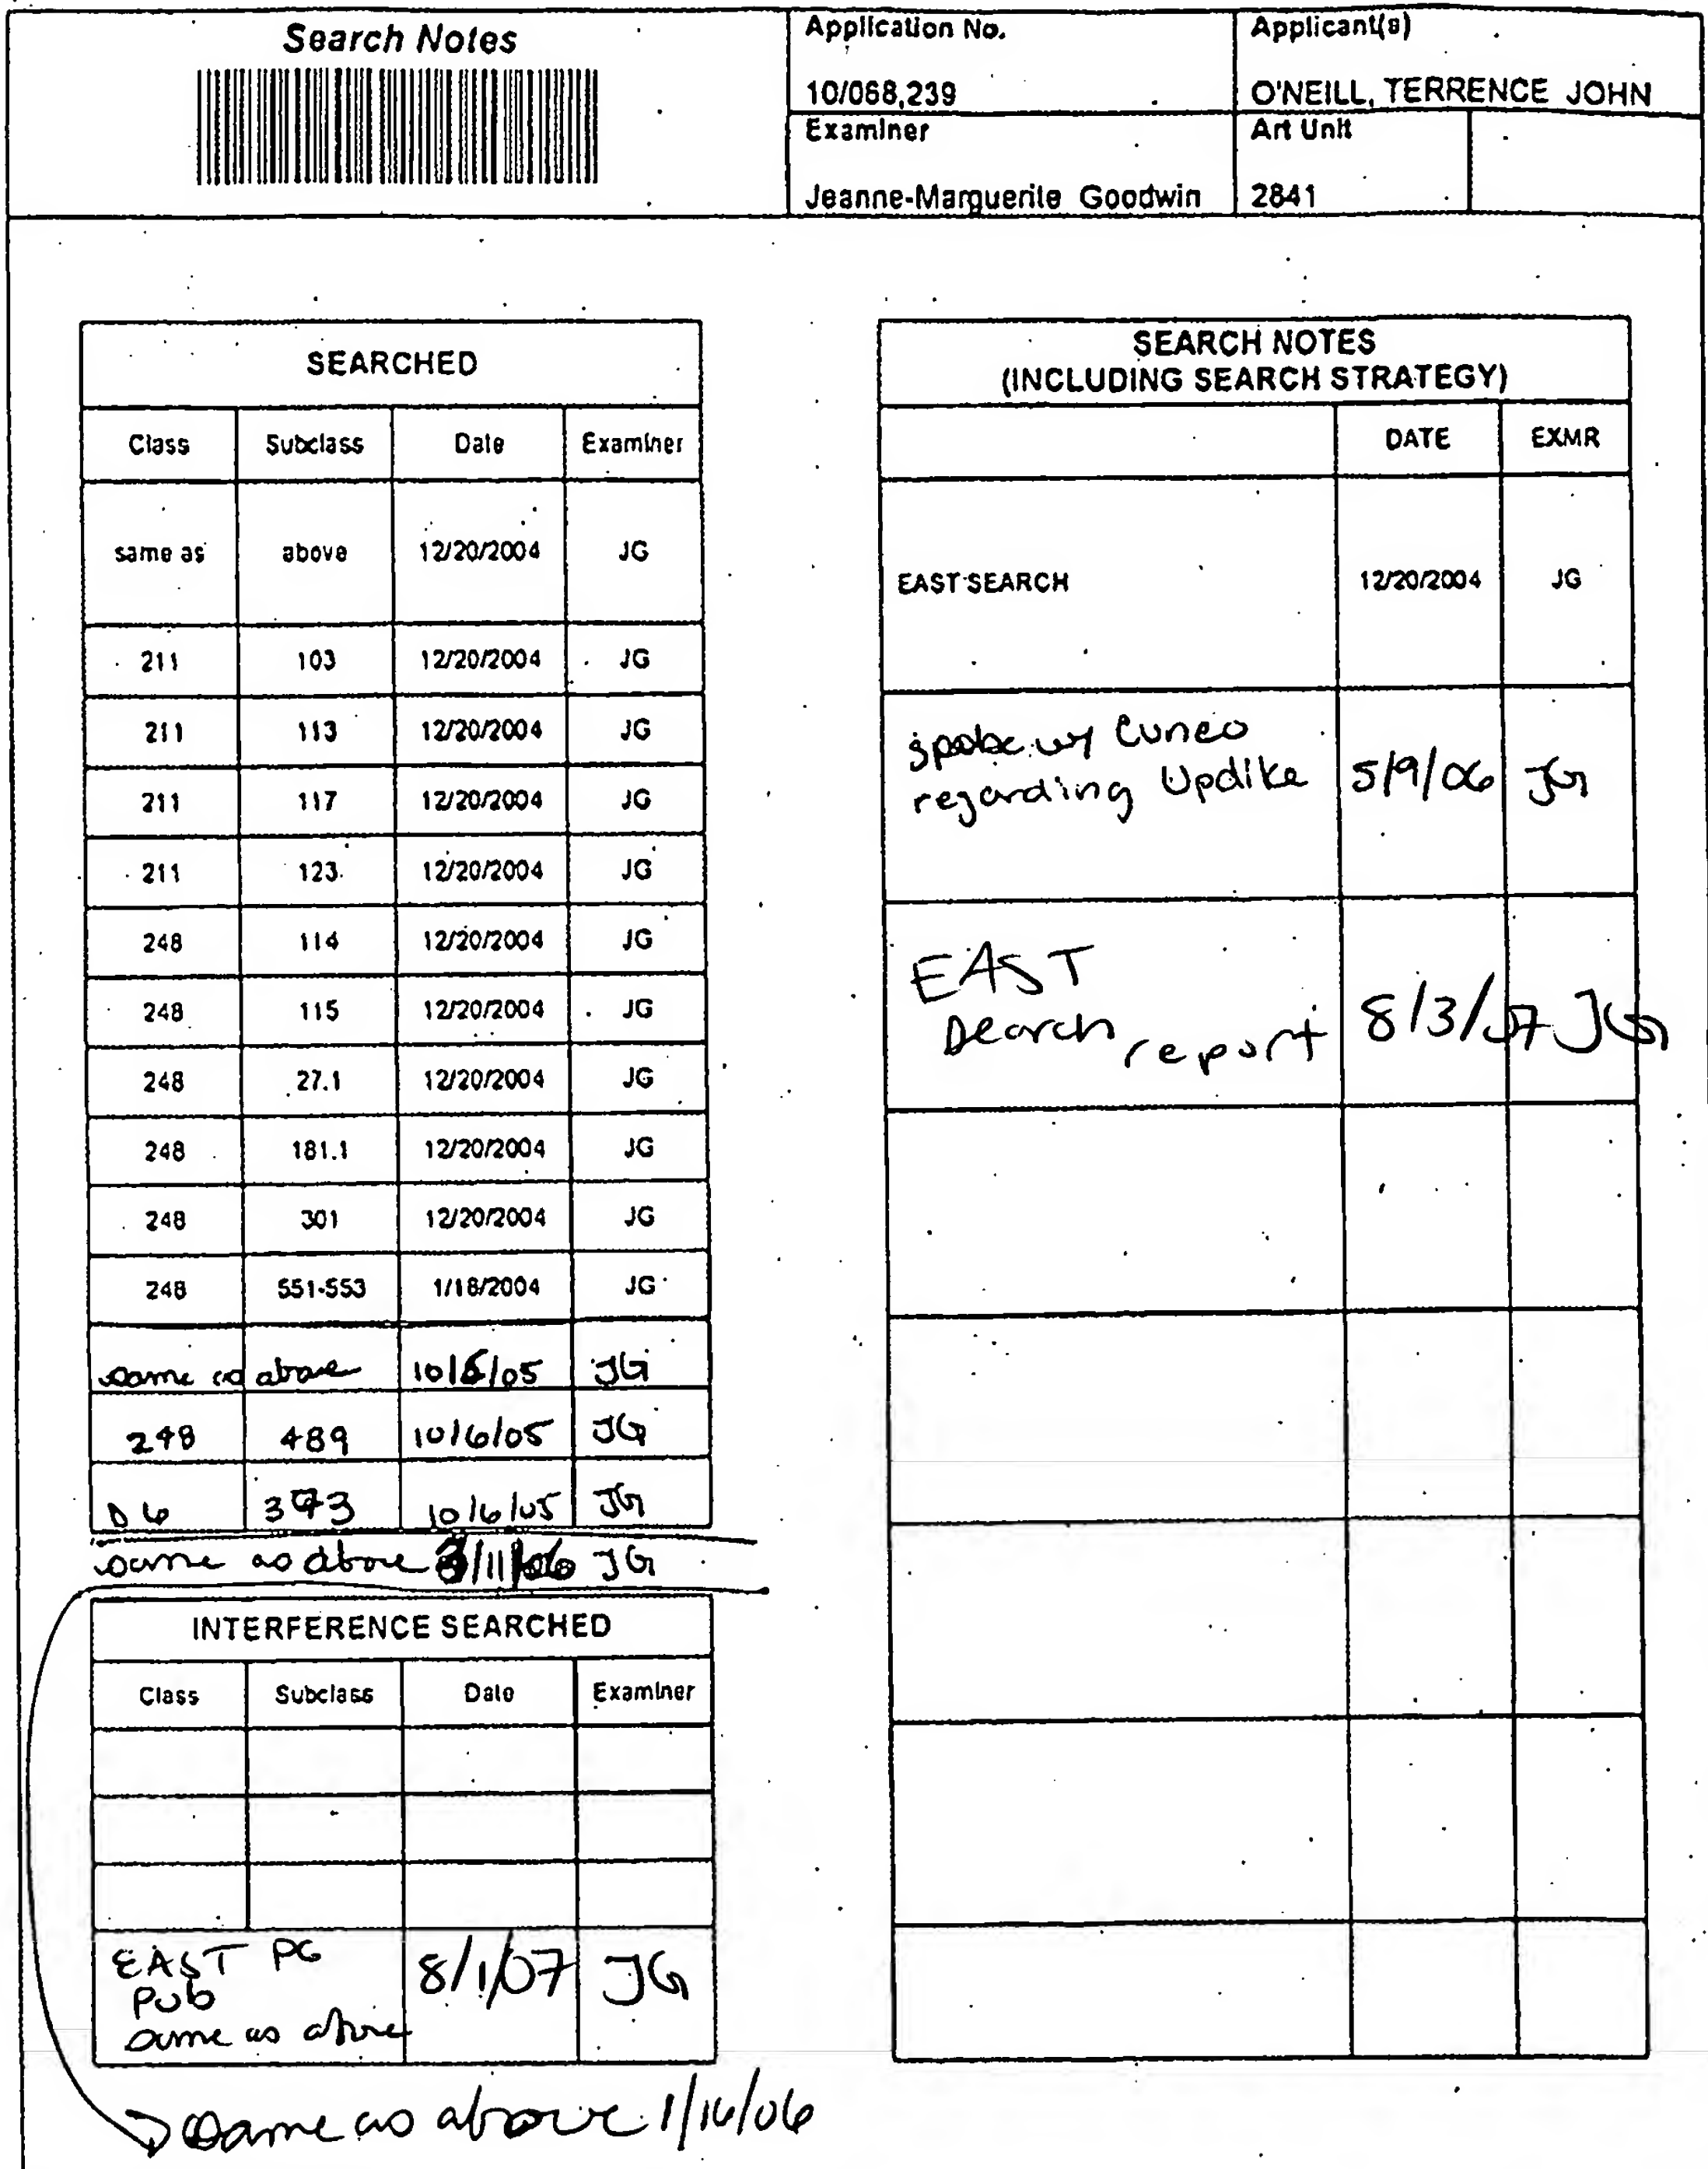 Search Notes
Application No.
10/068,239
Applicant(s)
O'NEILL, TERRENCE JOHN
Examiner
Jeanne-Marguerite Goodwin
Art Unit
2841
SEARCHED
Class Subclass Date Examiner
same as above 12/20/2004 JG
211 103 12/20/2004 JG
211 113 12/20/2004 JG
211 117 12/20/2004 JG
211 123 12/20/2004 JG
248 114 12/20/2004 JG
248 115 12/20/2004 JG
248 27.1 12/20/2004 JG
248 181.1 12/20/2004 JG
248 301 12/20/2004 JG
248 551-553 1/18/2004 JG
same as above 10/6/05 JG
248 489 10/6/05 JG
D6 JG 10/6/05
same as above JG
INTERFERENCE SEARCHED
Class Subclass Date Examiner
EAST PG 8/1/07 JG
Pub
same as above
same as above 1/16/06
SEARCH NOTES
(INCLUDING SEARCH STRATEGY)
DATE EXMR
EAST SEARCH 12/20/2004 JG
spoke w/ Cuneo
regarding Updike 5/9/06 JG
EAST
search report 8/3/07 JG